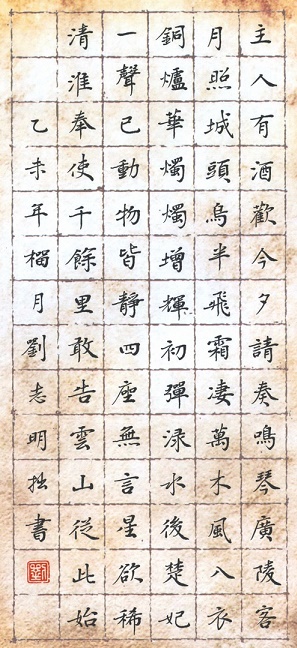 主人有酒歡今夕請奏鳴琴廣陵客
月照城頭烏半飛霜凄萬木風入衣
銅爐華燭燭增輝初彈淥水後楚妃
一聲已動物皆靜四座無言星欲稀
清淮奉使千餘里敢告雲山從此始
乙未年榴月劉志明拙書
劉